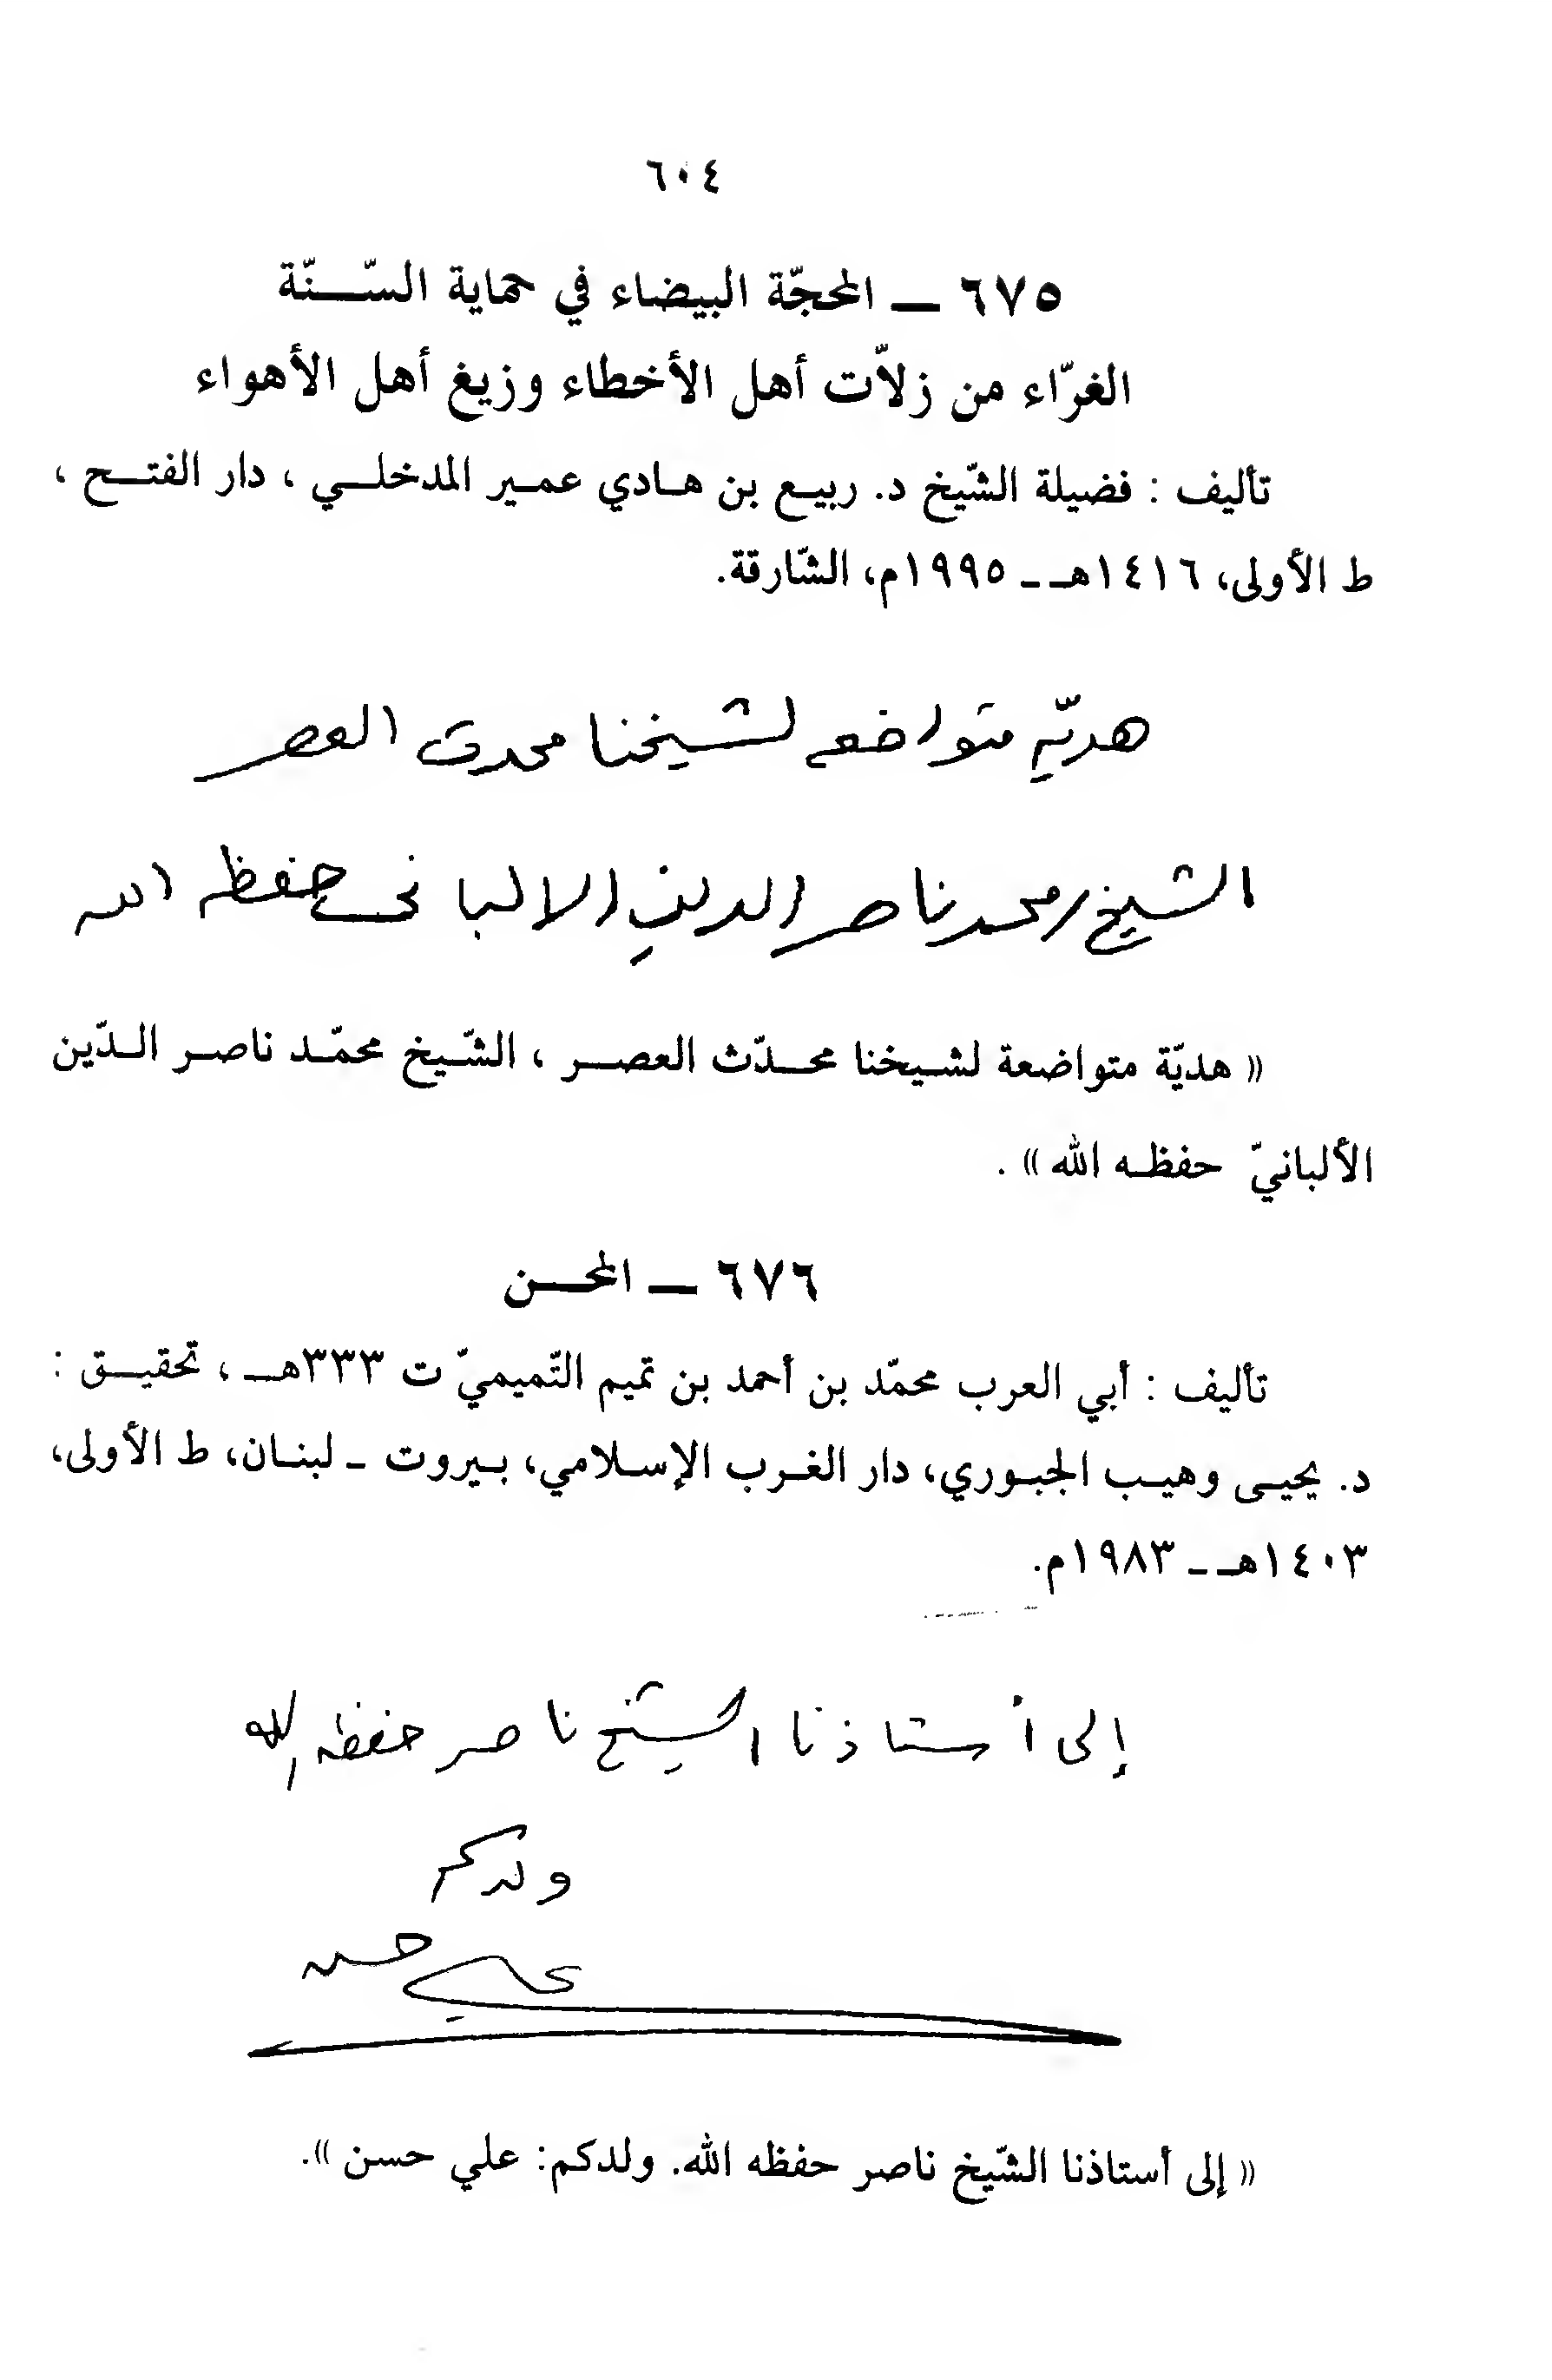 ٦٠٤
٦٧٥ ـ المحجّة البيضاء في حماية السّـنّة
الغرّاء من زلاّت أهل الأخطاء وزيغ أهل الأهواء
تأليف : فضيلة الشّيخ د. ربيـع بن هـادي عمـير المدخلـي ، دار الفتـح ،
ط الأولى، ١٤١٦هـ ـ ١٩٩٥م، الشّارقة.
هديّة متواضعة لشيخنا محدث العصر
الشيخ محمد ناصر الدين الالباني حفظه الله
« هديّة متواضعة لشـيخنا محـدّث العصـر ، الشّـيخ محمّـد ناصـر الـدّين
الألبانيّ حفظـه الله » .
٦٧٦ ـ المحـن
تأليف : أبي العرب محمّد بن أحمد بن تميم التّميميّ ت ٣٣٣هـ ، تحقيـق :
د. يحيـى وهيـب الجبـوري، دار الغـرب الإسـلامي، بـيروت ـ لبنـان، ط الأولى،
١٤٠٣هـ ـ ١٩٨٣م.
إلى أستاذنا الشيخ ناصر حفظه الله
ولدكم
علي حسن
« إلى أستاذنا الشّيخ ناصر حفظه الله. ولدكم: علي حسن ».